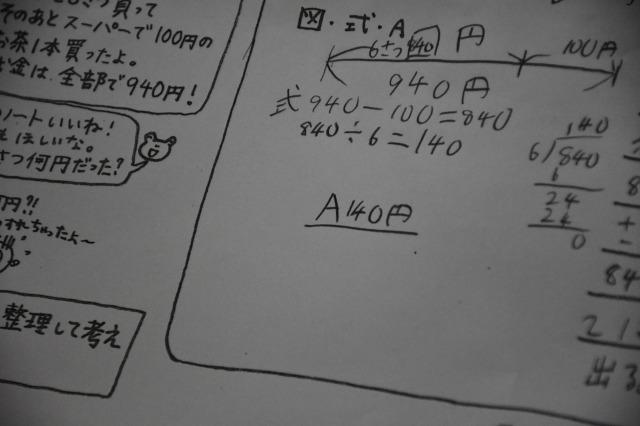 買って
そのあとスーパーで100円の
お茶1本買ったよ。
お金は、全部で940円!
ノートいいね!
ほしいな。
さつ何円だった?
円?!
すれちゃったよ〜
整理して考え
図・式・A
6さつ 840 円
100円
940円
式 940-100=840
840÷6=140
A140円
140
6)840
6
24
24
0
8
+
-
84
21
出3